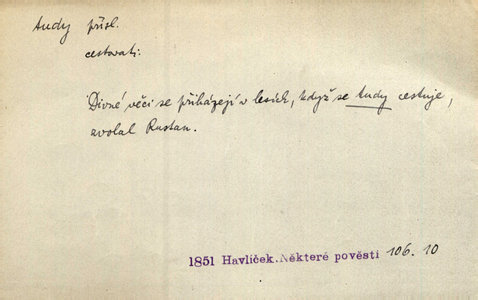 tudy přísl.
cestovati:
Divné věci se přiházejí v lesích, když se tudy cestuje,
zvolal Rustan.
1851 Havlíček. Některé pověsti 106. 10